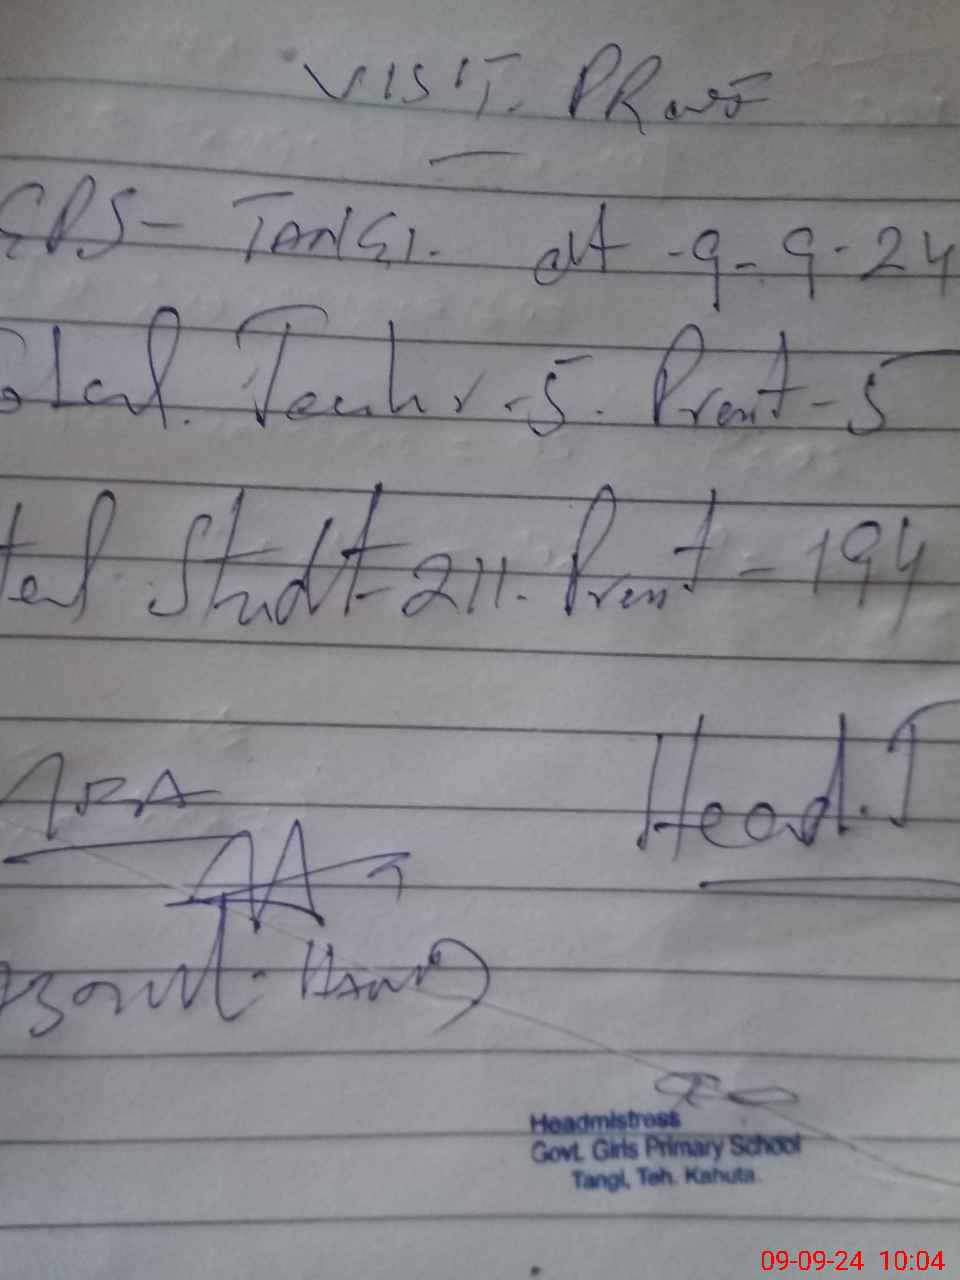 VISIT. PRove
GPS - TANGI. dt - 9-9-24
Total. Teachr - 5. Prent - 5
Total Studt - 211. Prent - 194
Head.T
Headmistress
Govt. Girls Primary School
Tangi, Teh. Kahuta.
09-09-24 10:04